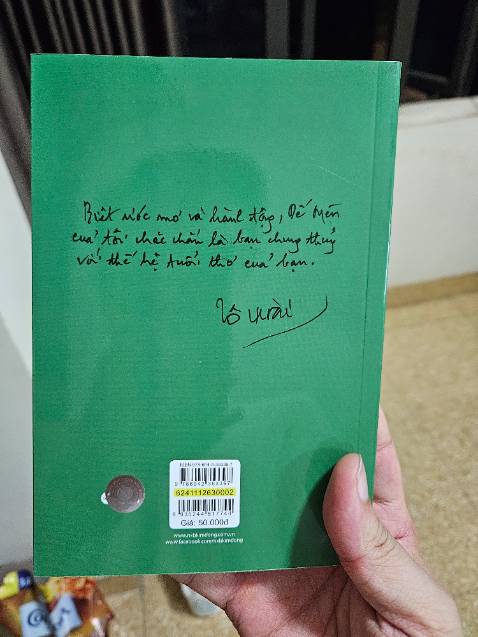 Biết ước mơ và hành động, Dế Mèn
của tôi chắc chắn là bạn chung thuỷ
với thế hệ tuổi thơ của bạn.
Tô Hoài
6241112630002
Giá: 50.000đ
www.nxbkimdong.com.vn
www.facebook.com/nxbkimdong